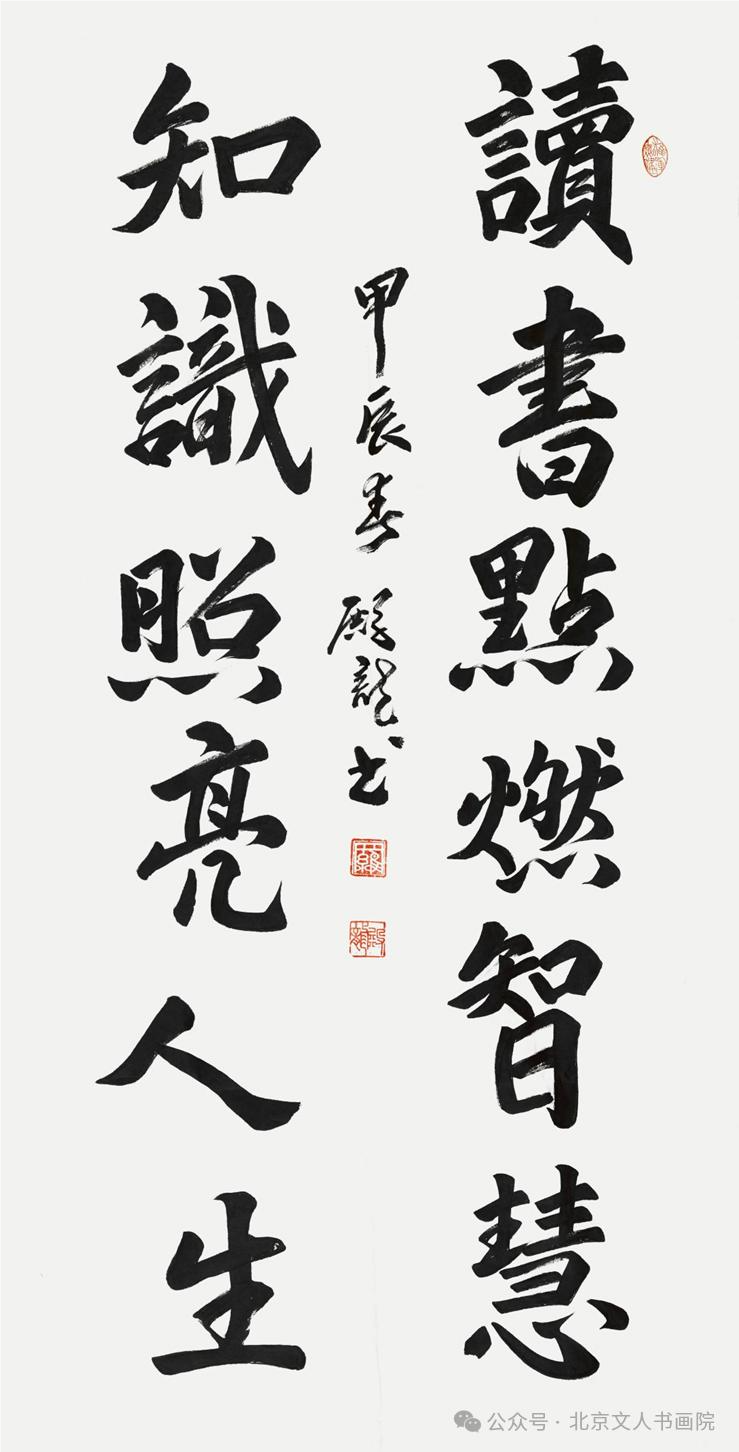 讀書點燃智慧
知識照亮人生
甲辰春 殿龍书
公众号 · 北京文人书画院